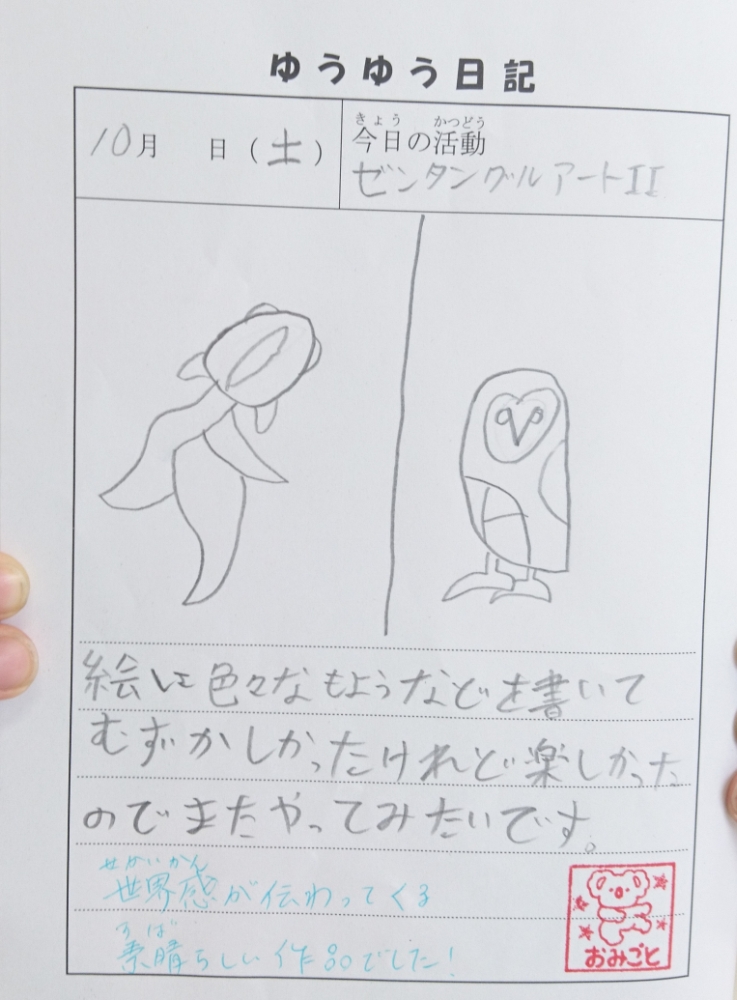 ゆうゆう日記
10月 日(土)
きょう かつどう
今日の活動
ゼンタングルアートII
絵に色々なもようなどを書いて
むずかしかったけれど楽しかった
のでまたやってみたいです。
せかいかん
世界感が伝わってくる
すば
素晴らしい作品でした!
おみごと